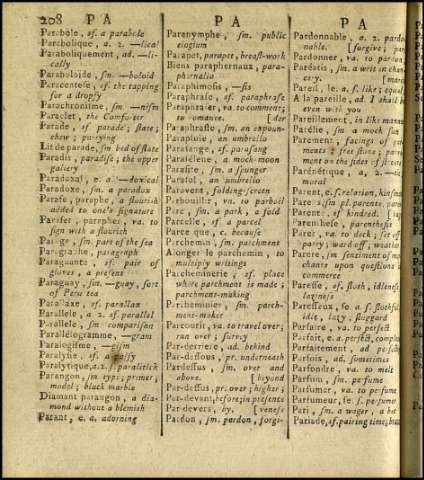 208 P A
P A
P A
Parabole, sf. a parabole
Parabolique, a. 2. —lical
Paraboliquement, ad. —li-
cally
Paraboloide, sm. —boloid
Paracentese, sf. the tapping
for a dropsy
Parachronisme, sm. —nism
Paraclet, the Comforter
Parade, sf. parade; state;
shew; parrying
Lit de parade, sm. bed of state
Paradis, paradise; the upper
gallery
Paradoxal, e. a. —doxical
Paradoxe, sm. a paradox
Parafe, paraphe, a flourish
added to one's signature
Parafer, parapher, va. to
sign with a flourish
Parage, sm. part of the sea
Paragraphe, paragraph
Paraguante, sf. pair of
gloves, a present
Paraguay, sm. —guay, sort
of Peru tea
Parallaxe, sf. parallax
Parallele, a. 2. sf. parallel
Parallele, sm. comparison
Parallélogramme, —gram
Paralogisme, —gism
Paralysie, sf. a palsy
Paralytique, a. 2. s. paralitick
Parangon, sm. type; primer;
model; black marble
Diamant parangon, a dia-
mond without a blemish
Parant, e. a. adorning
Paranymphe, sm. public
elogium
Parapet, parapet, breast-work
Biens paraphernaux, para-
phernalia
Paraphimosis, —sis
Paraphrase, sf. paraphrase
Paraphraser, va. to comment;
to romance. [der
Paraphraste, sm. an expoun-
Parapluie, an umbrella
Parasange, sf. parasang
Parasélene, a mock-moon
Parasite, sm. a spunger
Parasol, an umbrella
Paravent, folding-screen
Parbouillir, va. to parboil
Parc, sm. a park, a fold
Parcelle, sf. a parcel
Parce que, c. because
Parchemin, sm. parchment
Alonger le parchemin, to
multiply writings
Parcheminerie, sf. place
where parchment is made;
parchment-making
Parcheminier, sm. parch-
ment-maker
Parcourir, va. to travel over;
run over; survey
Par-derriere, ad. behind
Par-dessous, pr. underneath
Pardessus, sm. over and
above. [beyond
Par-dessus, pr. over; higher;
Par-devant, before; in presence
Par-devers, by. [veness
Pardon, sm. pardon, forgi-
Pardonnable, a. 2. pardo
nable. [forgive;
Pardonner, va. to pardon
Paréatis, sm. a writ in chan-
cery. [march
Pareil, le. a. s. like; equal
A la pareille, ad. I shall be
even with you
Pareillement, in like manner
Parélie, sm. a mock sun
Parement, facings of
ments; free stone;
ment on the sides of
Parénétique, a, 2. —tic
moral
Parent, e. s. relation, kinsman
Parens, sm. pl. parents,
Parenté, sf. kindred.
Parenthese, parenthesis
Parer, va. to deck; set off
parry; ward off, weather
Parere, sm. sentiment of mer
chants upon questions of
commerce
Paresse, sf. sloth, idleness
laziness
Paresseux, se. a. s. slothful
idle, lazy; sluggard
Parfaire, va. to perfect
Parfait, e. a. perfect, complete
Parfaitement, ad. perfectly
Parfois, ad. sometimes
Parfondre, va. to melt
Parfum, sm. perfume
Parfumer, va. to perfume
Parfumeur, se. s. perfume
Pari, sm. a wager, a bet
Pariade, sf. pairing time;